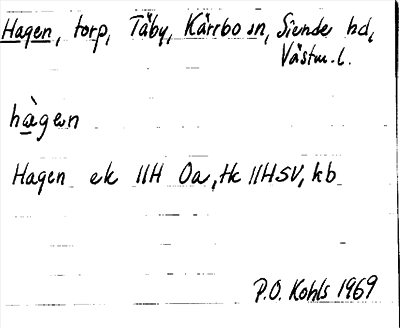 Hagen, torp, Täby, Kärrbo sn, Siende hd,
Västm. l.
hàgen
Hagen ek 11H Oa, tk 11HSV, kb
P.O. Kohls 1969